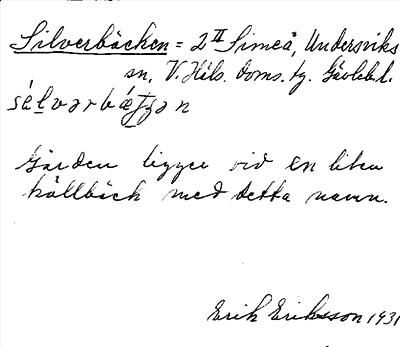 Silverbäcken = 2 II Simeå, Undersviks
sn, V. Häls. doms. tg. Gävlebl.
sélvərbætʃən
Gården ligger vid en liten
källbäck med detta namn.
Erik Eriksson 1931